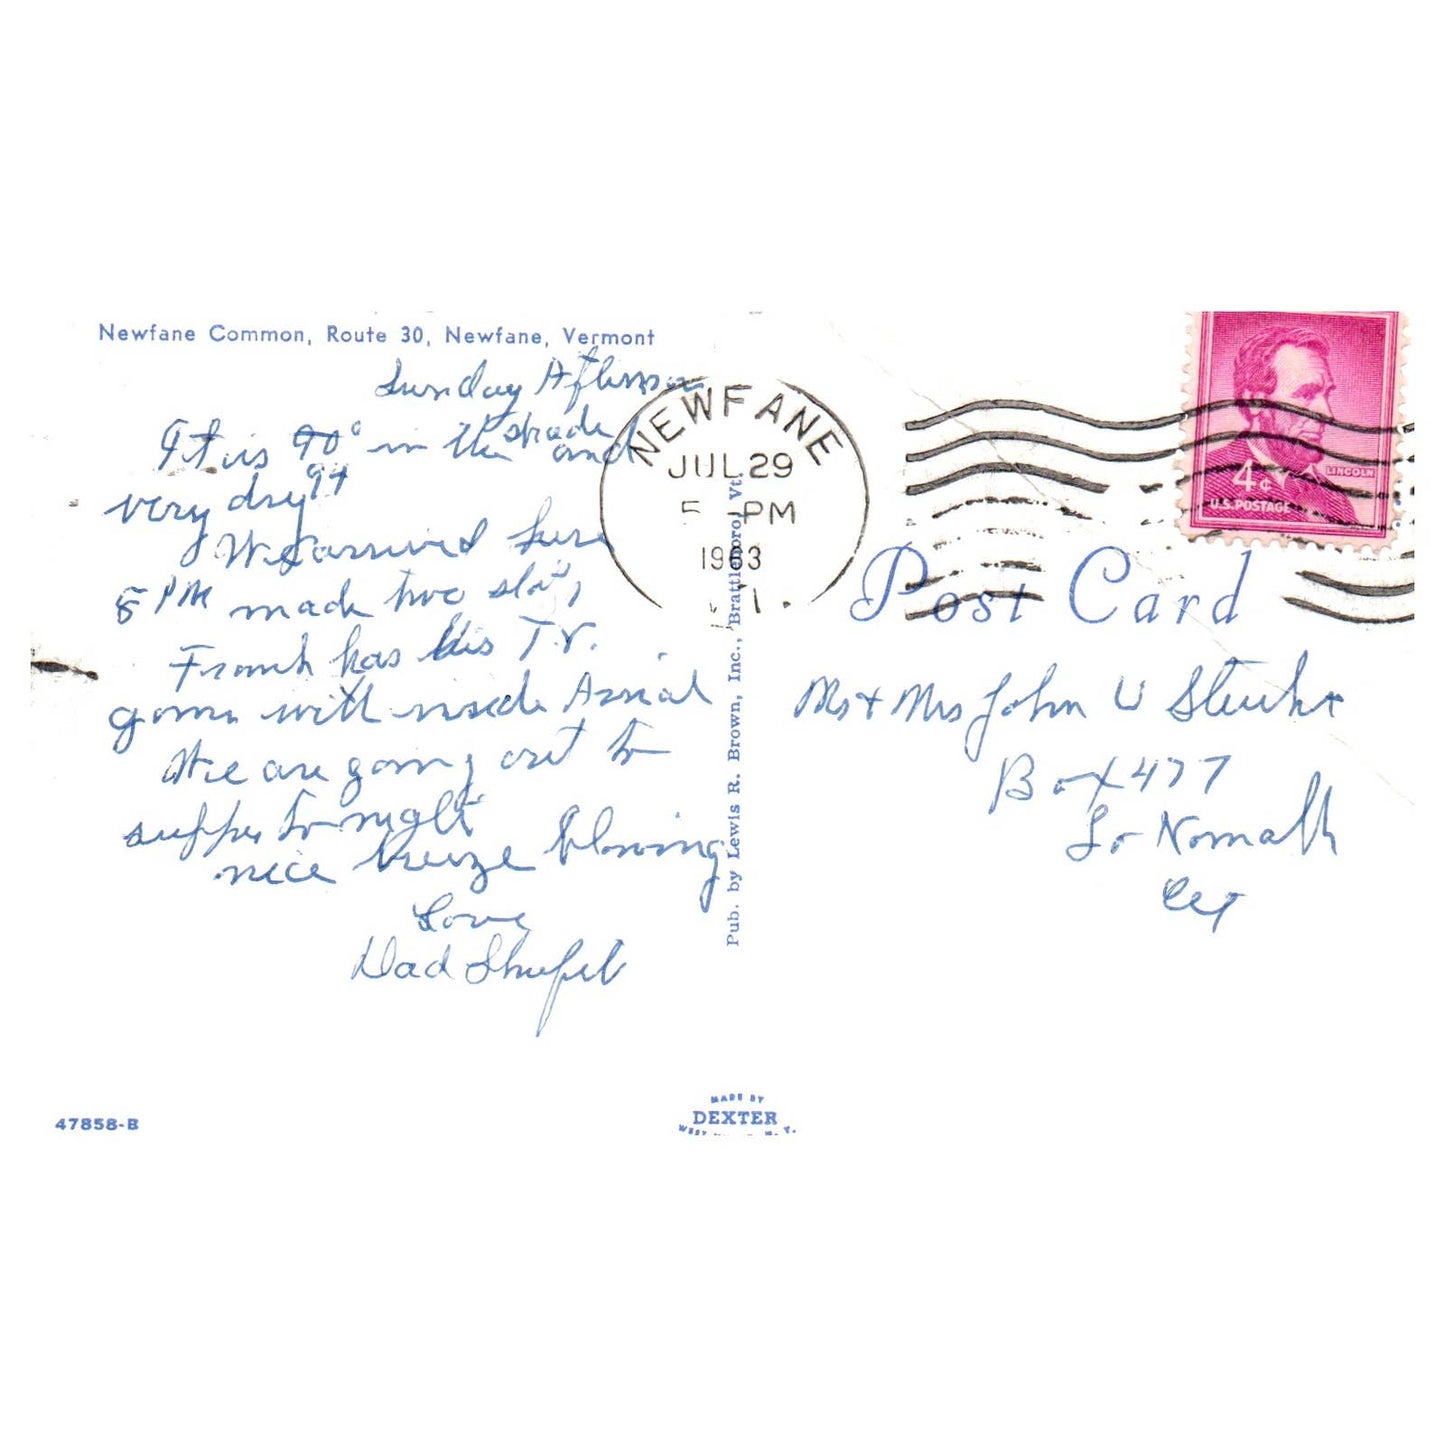 Newfane Common, Route 30, Newfane, Vermont
Sunday
It is 90° in the shade and
very dry 94
We arrived here
5 PM made two stops
Frank has his T.V.
going with inside Aerial
We are going out to
supper tonight
nice breeze blowing
Love
Dad
47858-B
Pub. by Lewis R. Brown, Inc., Brattleboro, Vt.
MADE BY
DEXTER
WEST
NEWFANE
JUL 29
5 PM
1963
4¢
LINCOLN
U.S. POSTAGE
Post Card
Mr + Mrs John U
Box 477
So Norwalk